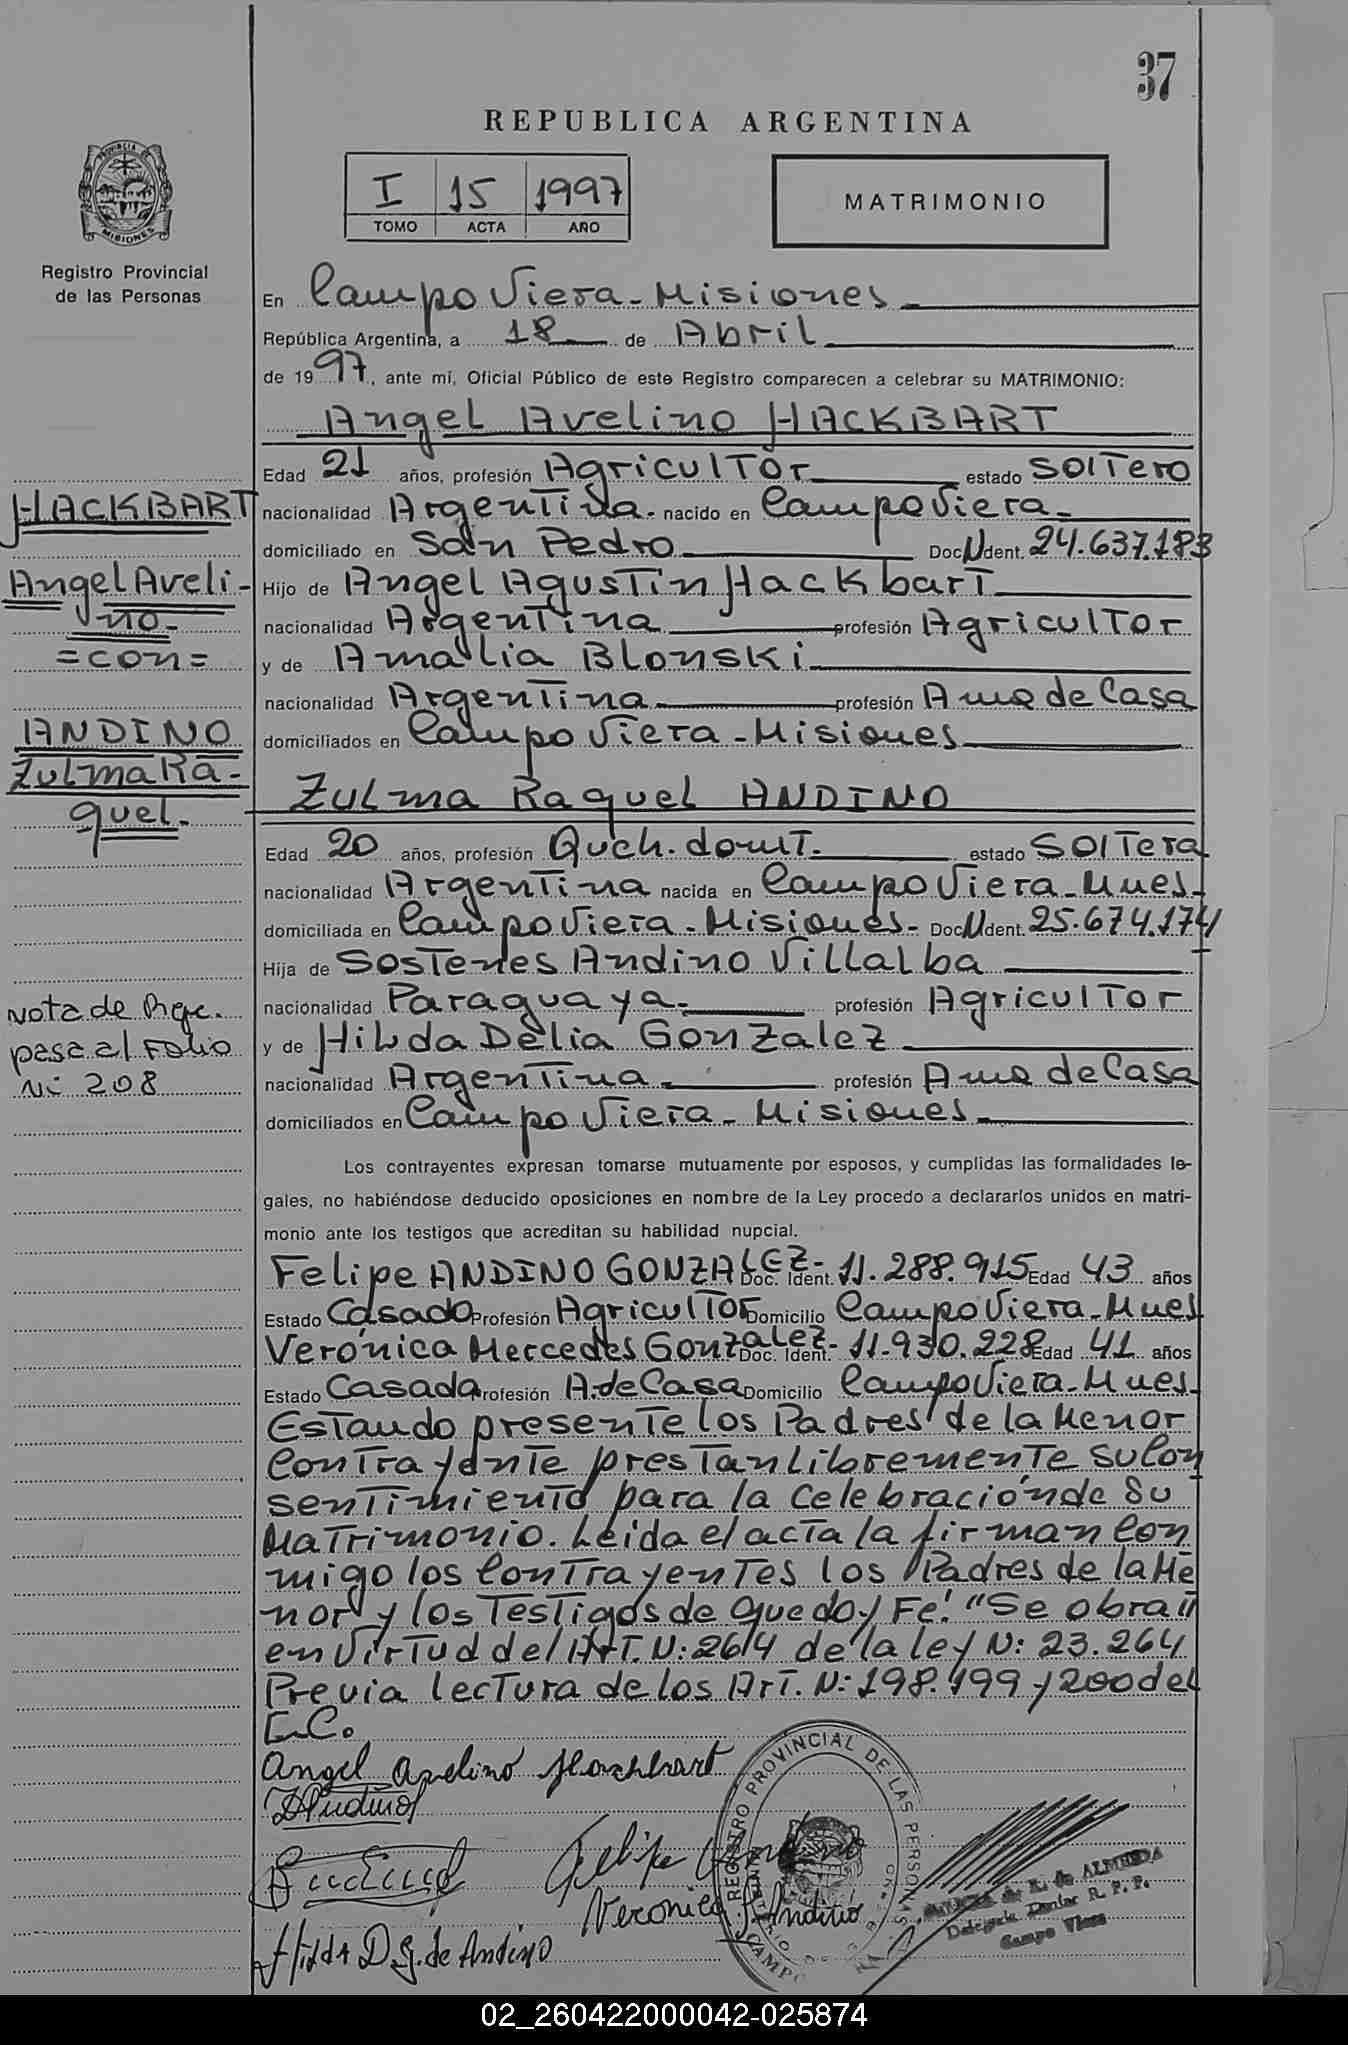 37
REPUBLICA ARGENTINA
I 15 1997
TOMO ACTA AÑO
MATRIMONIO
PROVINCIA DE
MISIONES
Registro Provincial
de las Personas
En Campo Viera - Misiones
República Argentina, a 18 de Abril
de 1997, ante mí, Oficial Público de este Registro comparecen a celebrar su MATRIMONIO:
Angel Avelino HACKBART
Edad 21 años, profesión Agricultor estado Soltero
nacionalidad Argentina - nacido en Campo Viera -
domiciliado en San Pedro Doc N dent. 24.637.183
Hijo de Angel Agustin Hackbart
nacionalidad Argentina profesión Agricultor
y de Amalia Blonski
nacionalidad Argentina profesión Ama de Casa
domiciliados en Campo Viera - Misiones
HACKBART
Angel Aveli-
no -
= con =
ANDINO
Zulma Ra-
quel.
Zulma Raquel ANDINO
Edad 20 años, profesión Queh. domt. estado Soltera
nacionalidad Argentina nacida en Campo Viera - Mnes -
domiciliada en Campo Viera - Misiones - Doc N dent. 25.674.174
Hija de Sostenes Andino Villalba
nacionalidad Paraguaya - profesión Agricultor
y de Hilda Delia Gonzalez
nacionalidad Argentina - profesión Ama de Casa
domiciliados en Campo Viera - Misiones -
Nota de
pasa al Folio
Nº 208
Los contrayentes expresan tomarse mutuamente por esposos, y cumplidas las formalidades le-
gales, no habiéndose deducido oposiciones en nombre de la Ley procedo a declararlos unidos en matri-
monio ante los testigos que acreditan su habilidad nupcial.
Felipe ANDINO GONZALEZ - Doc. Ident. 11.288.915 Edad 43 años
Estado Casado Profesión Agricultor Domicilio Campo Viera - Mnes
Verónica Mercedes Gonzalez - Doc. Ident. 11.930.228 Edad 41 años
Estado Casada Profesión A. de Casa Domicilio Campo Viera - Mnes -
Estando presente los Padres de la Menor
Contrayente prestan libremente su Con
sentimiento para la Celebración de Su
Matrimonio. Leida el acta la firman con
migo los contrayentes los Padres de la Me
nor y los Testigos de que doy Fe! "Se obra"
en Virtud del Art. N: 264 de la ley N: 23.264
Previa lectura de los Art. N: 198. 199 y 200 del
C.C.
Angel Avelino Hackbart
Felipe
Veronica Andino
Hilda D G. de Andino
REGISTRO PROVINCIAL DE LAS PERSONAS
CAMPO
de ALMEIDA
Delegada Titular R. P. P.
Campo Viera
02_260422000042-025874